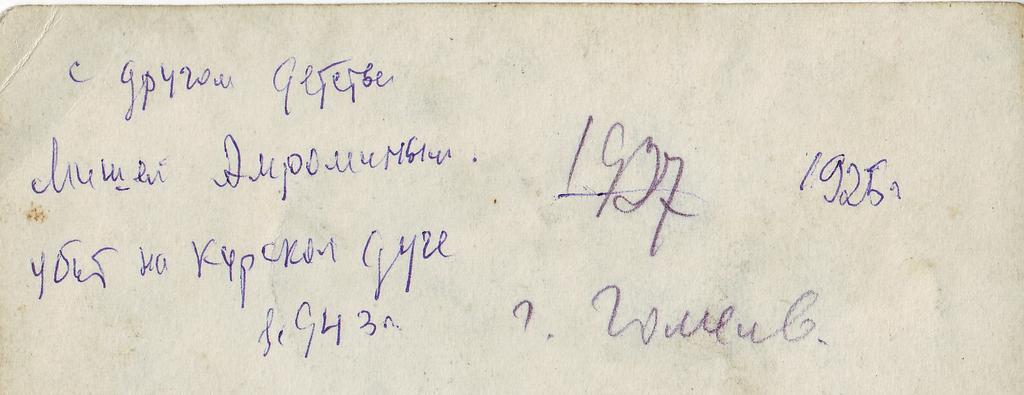 с другом детства
Мишей Амроминым.
убит на Курской дуге
1943г
1937
1925г
г. Гомель.